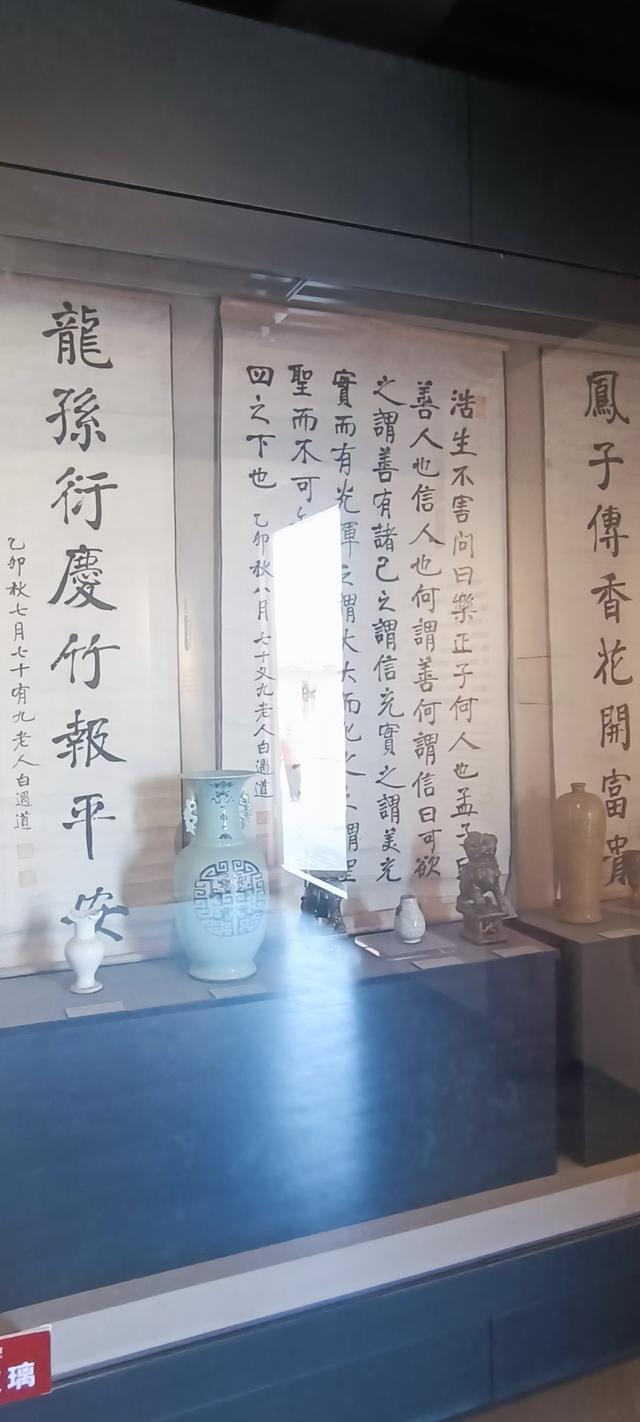 鳳子傳香花開富貴
浩生不害問曰樂正子何人也孟子曰
善人也信人也何謂善何謂信曰可欲
之謂善有諸己之謂信充實之謂美充
實而有光輝之謂大大而化之之謂聖
聖而不可
四之下也
乙卯秋八月七十又九老人白遇道
龍孫衍慶竹報平安
乙卯秋七月七十有九老人白遇道
璃